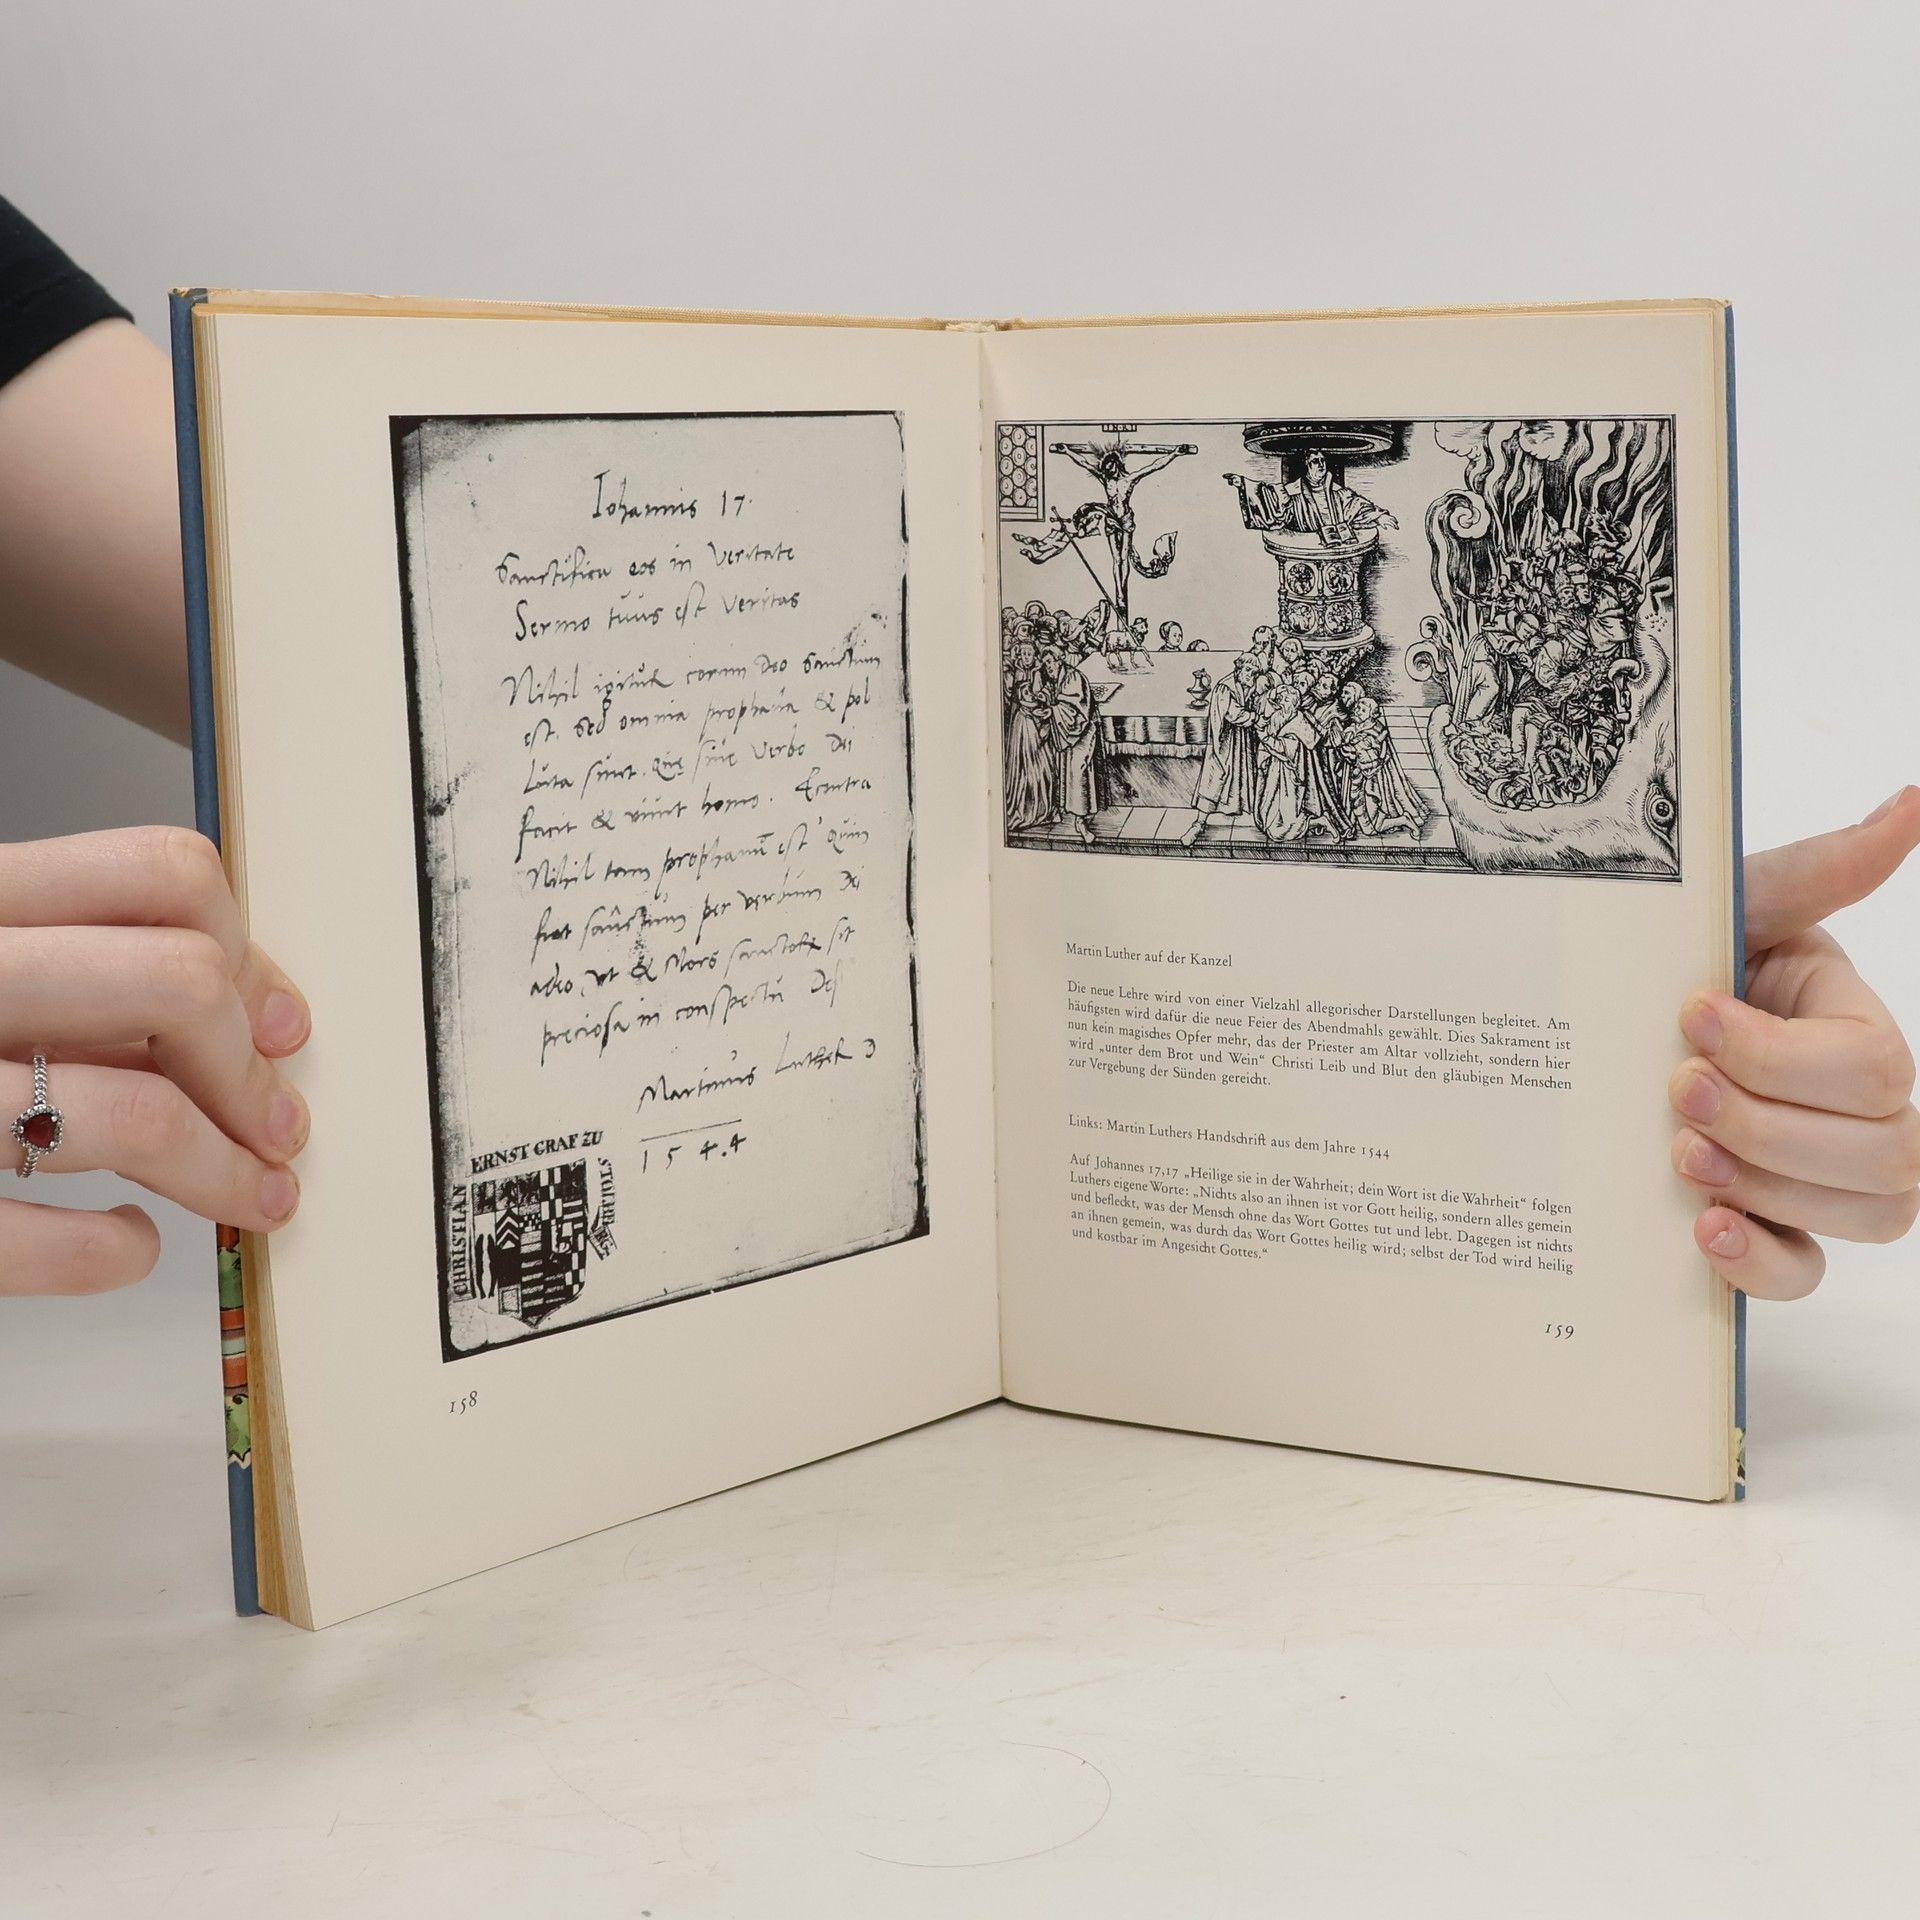 Iohannis 17.
Sanctifica eos in veritate
Sermo tuus est veritas
Nihil igitur coram Deo sanctum
est. Sed omnia prophana & pol
luta sunt. que sine verbo Dei
facit & vivit homo. Econtra
Nihil tam prophanū est quin
fiat sanctum per verbum Dei
adeo, vt & Mors sanctoꝝ sit
preciosa in conspectu
Martinus Luther D
1 5 4.4
ERNST GRAF ZU
CHRISTIAN
158
INRI
Martin Luther auf der Kanzel
Die neue Lehre wird von einer Vielzahl allegorischer Darstellungen begleitet. Am
häufigsten wird dafür die neue Feier des Abendmahls gewählt. Dies Sakrament ist
nun kein magisches Opfer mehr, das der Priester am Altar vollzieht, sondern hier
wird „unter dem Brot und Wein“ Christi Leib und Blut den gläubigen Menschen
zur Vergebung der Sünden gereicht.
Links: Martin Luthers Handschrift aus dem Jahre 1544
Auf Johannes 17,17 „Heilige sie in der Wahrheit; dein Wort ist die Wahrheit“ folgen
Luthers eigene Worte: „Nichts also an ihnen ist vor Gott heilig, sondern alles gemein
und befleckt, was der Mensch ohne das Wort Gottes tut und lebt. Dagegen ist nichts
an ihnen gemein, was durch das Wort Gottes heilig wird; selbst der Tod wird heilig
und kostbar im Angesicht Gottes.“
159